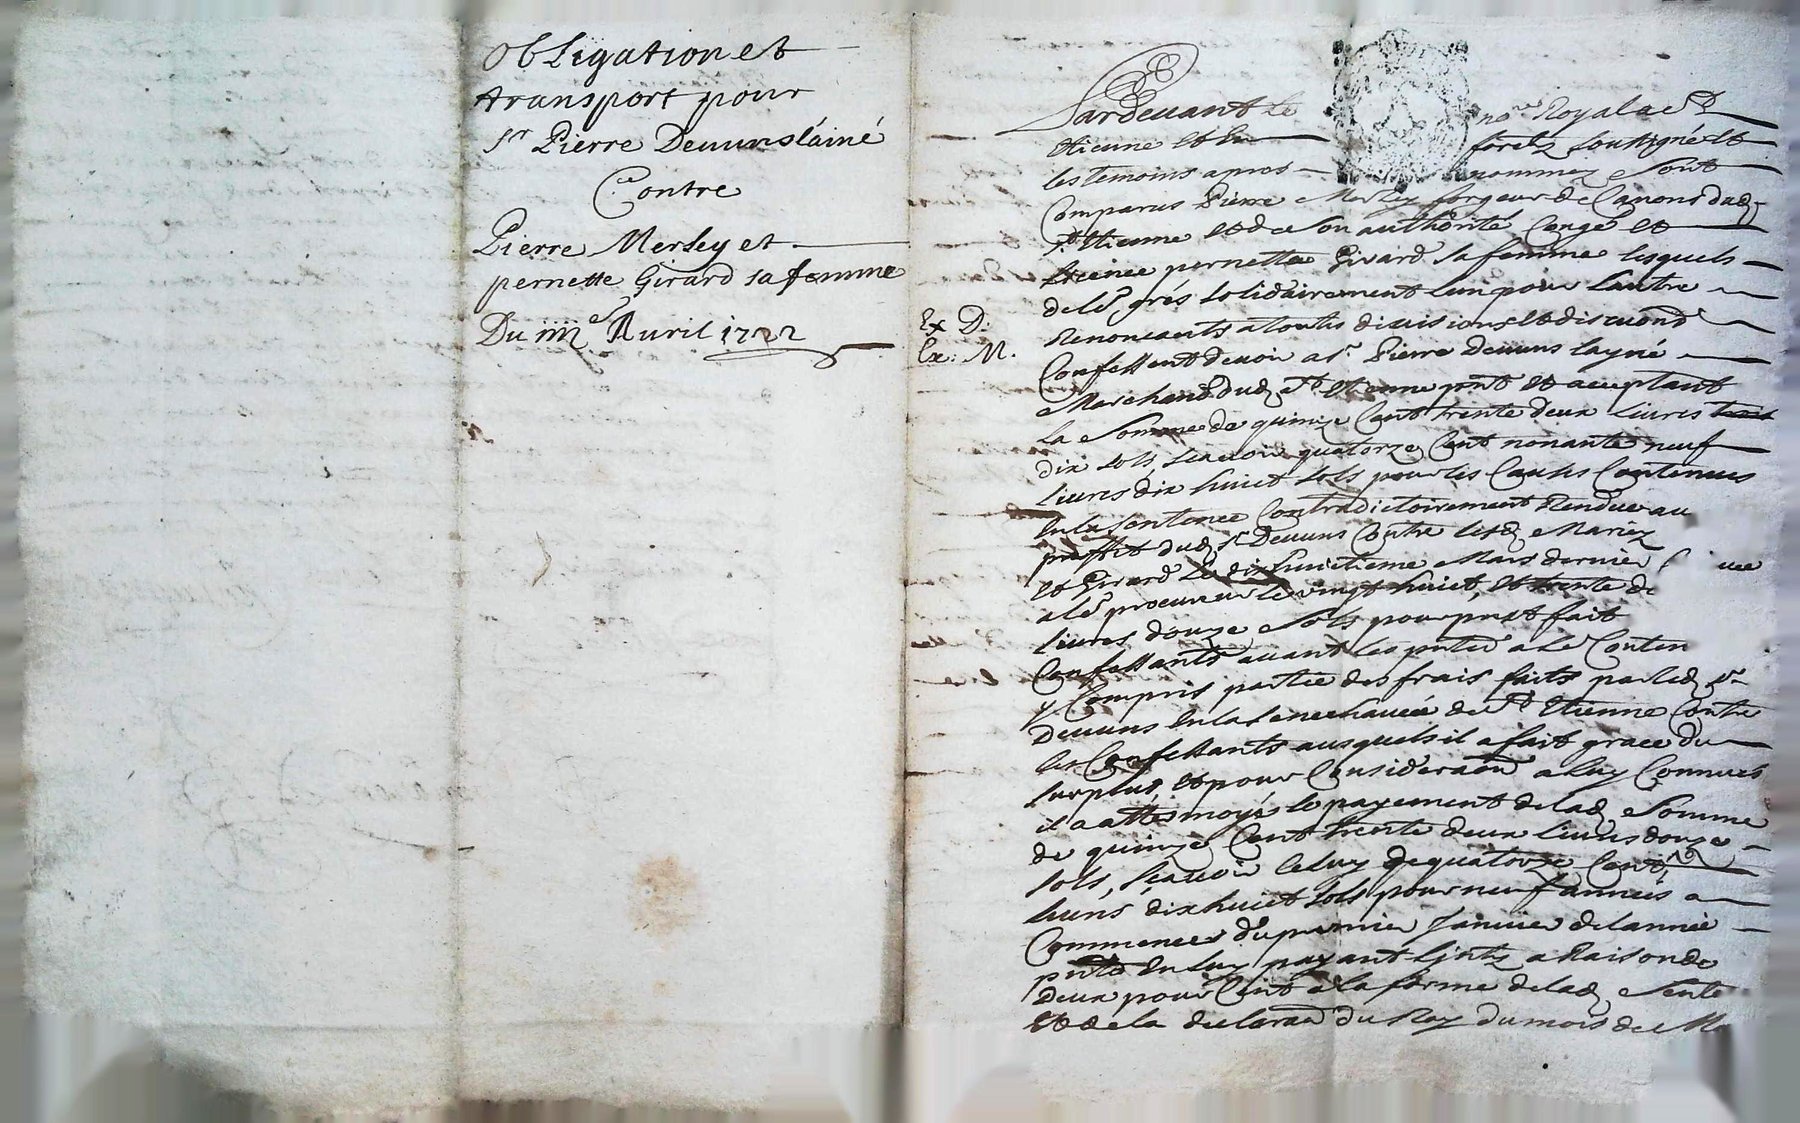 Obligation et
transport pour
Sr Pierre Deuuns láiné
Contre
Pierre Merley et
pernette Girard sa femme
Du iiiie Auril 1722
Ex D.
Ex: M.
Pardeuant le nore Royal a St
Etienne et En forêz soussigné et
les temoins apres nommez sont
Comparus Pierre Merley forgeur de Canons dud
St Etienne et de son authorité Congé et
licence pernette Girard sa femme lesquels
de lr grés solidairement lun pour lautre
Renonceants a toutes diuisions et discuond
Confessent deuoir a sr. Pierre Deuuns layné
Marchand dud St Etienne pnt et acceptant
La somme de quinze Cent trente deux liures
dix sols, scauoir quatorze Cent nonante neuf
liures dix huict sols pour les Causes Contenues
En la sentence Contradictoirement Rendue au
proffit dud sr Deuuns Contre lesd Mariez
et Girard Le dix huictieme Mars dernier
a lr procureur le vingt huict, et trente de
liures douze sols pour prest fait
Confessants auant les pntes a lr Conten
y Compris partie des frais faits par led sr
Deuuns En la senechaucée de St Etienne Contre
les Confessants ausquels il a fait grace du
surplus, et pour Consideraon a luy Connues
il a attermoyé le payement de lad somme
de quinze Cent trente deux liures douze
sols, scauoir Celuy de quatorze Cent
liures dix huict sols pour neuf années a
Commencer du premier Januier de lannée
pnte En luy payant a Raison de
deux pour Cent a la forme de lad sente
et de la declaraon du Roy du mois de Ma